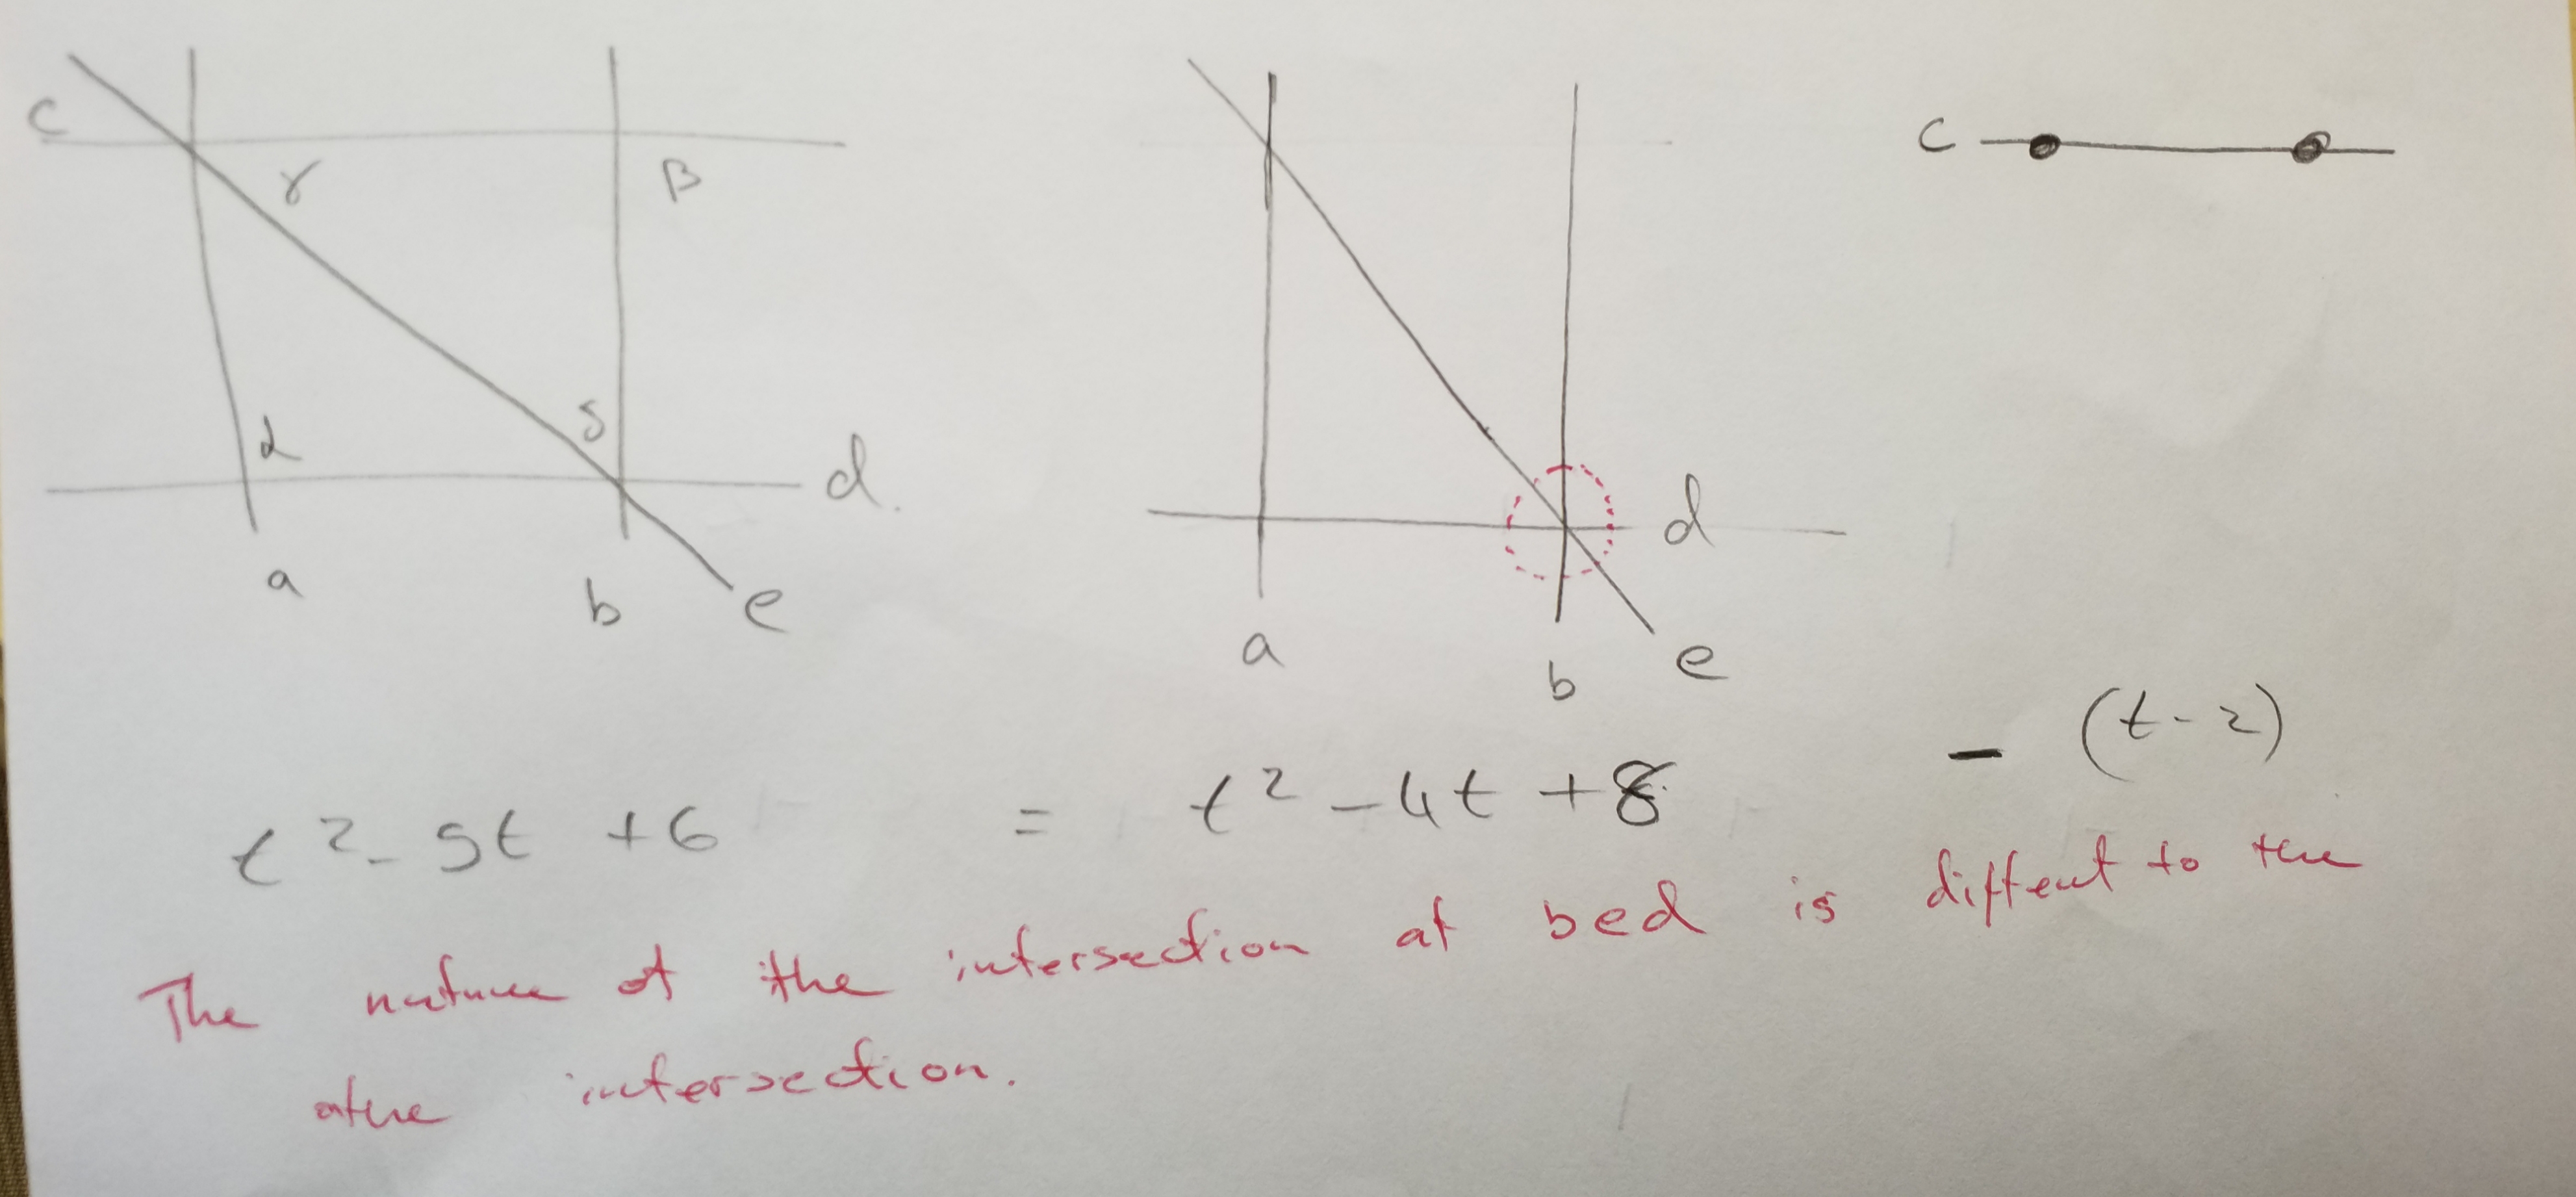 c
γ
β
c
α
δ
d.
d
a
b
e
a
b
e
t² - 5t + 6 = t² - 4t + 8 - (t - 2)
The nature of the intersection at bed is diffent to the
othe intersection.